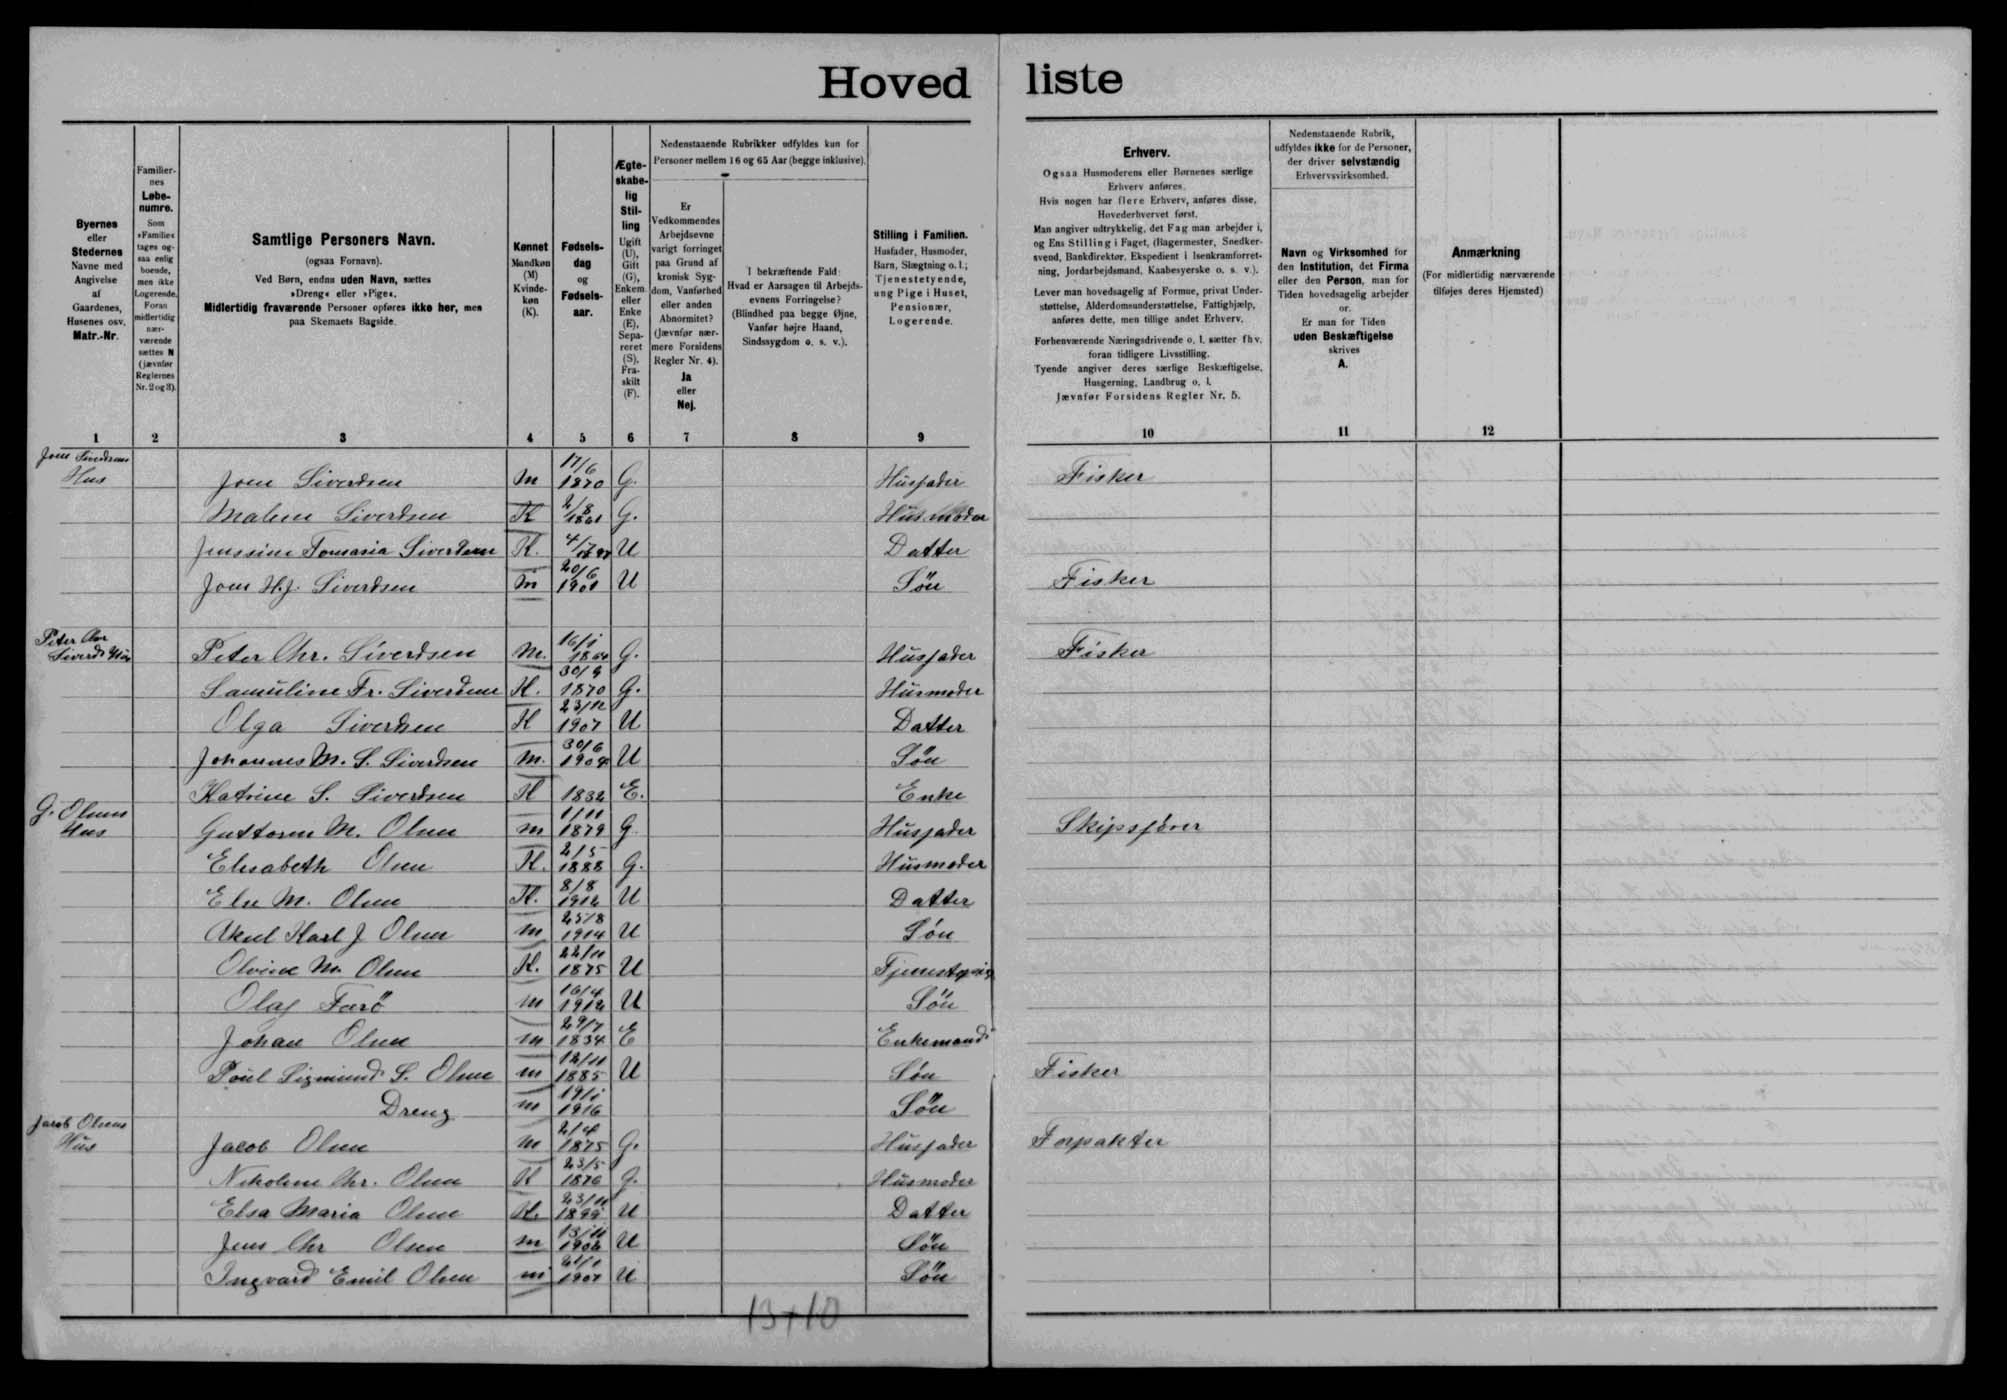 Hoved liste
Byernes
eller
Stedernes
Navne med
Angivelse
af
Gaardenes,
Husenes osv.
Matr.-Nr.
Familier-
nes
Løbe-
numre.
Som
»Familie«
tages og-
saa enlig
boende,
men ikke
Logerende.
Foran
midlertidig
nær-
værende
sættes N
(jævnfør
Reglernes
Nr. 2 og 3).
Samtlige Personers Navn.
(ogsaa Fornavn).
Ved Børn, endnu uden Navn, sættes
»Dreng« eller »Pige«.
Midlertidig fraværende Personer opføres ikke her, men
paa Skemaets Bagside.
Kønnet
Mandkøn
(M)
Kvinde-
køn
(K).
Fødsels-
dag
og
Fødsels-
aar.
Ægte-
skabe-
lig
Stil-
ling
Ugift
(U),
Gift
(G),
Enkem.
eller
Enke
(E),
Sepa-
reret
(S).
Fra-
skilt
(F).
Nedenstaaende Rubrikker udfyldes kun for
Personer mellem 16 og 65 Aar (begge inklusive).
Er
Vedkommendes
Arbejdsevne
varigt forringet
paa Grund af
kronisk Syg-
dom, Vanførhed
eller anden
Abnormitet?
(Jævnfør nær-
mere Forsidens
Regler Nr. 4).
Ja
eller
Nej.
I bekræftende Fald:
Hvad er Aarsagen til Arbejds-
evnens Forringelse?
(Blindhed paa begge Øjne,
Vanfør højre Haand,
Sindssygdom o. s. v.).
Stilling i Familien.
Husfader, Husmoder,
Barn, Slægtning o. l.;
Tjenestetyende,
ung Pige i Huset,
Pensionær,
Logerende.
Erhverv.
Ogsaa Husmoderens eller Børnenes særlige
Erhverv anføres.
Hvis nogen har flere Erhverv, anføres disse,
Hovederhvervet først.
Man angiver udtrykkelig, det Fag man arbejder i,
og Ens Stilling i Faget, (Bagermester, Snedker-
svend, Bankdirektør, Ekspedient i Isenkramforret-
ning, Jordarbejdsmand, Kaabesyerske o. s. v.).
Lever man hovedsagelig af Formue, privat Under-
støttelse, Alderdomsunderstøttelse, Fattighjælp,
anføres dette, men tillige andet Erhverv.
Forhenværende Næringsdrivende o. l. sætter fhv.
foran tidligere Livsstilling.
Tyende angiver deres særlige Beskæftigelse,
Husgerning, Landbrug o. l.
Jævnfør Forsidens Regler Nr. 5.
Nedenstaaende Rubrik,
udfyldes ikke for de Personer,
der driver selvstændig
Erhvervsvirksomhed.
Navn og Virksomhed for
den Institution, det Firma
eller den Person, man for
Tiden hovedsagelig arbejder
for.
Er man for Tiden
uden Beskæftigelse
skrives
A.
Anmærkning
(For midlertidig nærværende
tilføjes deres Hjemsted)
1 2 3 4 5 6 7 8 9 10 11 12
Joen Siverdsens
Hus Joen Siverdsen M 17/6 1870 G. Husfader Fisker
Malene Siverdsen K 2/8 G. Husmoder
Jenssine Tomasia Siverdsen K. U Datter
Joen H.J. Siverdsen M 20/6 1901 U Sön Fisker
Peter Chr
Siverds Hus Peter Chr. Siverdsen M. 16/1 G. Husfader Fisker
Samuline Fr. Siverdsen K. 30/9 1870 G. Husmoder
Olga Siverdsen K 1907 U Datter
Johannes M. S. Siverdsen M. 30/6 1904 U Sön
Katrine S. Siverdsen K 1832 E. Enke
G. Olsens
Hus Guttorm M. Olsen M 1/11 1879 G Husfader Skipsförer
Elisabeth Olsen K. 2/5 1888 G. Husmoder
Else M. Olsen K. 8/8 1912 U Datter
Aksel Karl J Olsen M 25/8 1914 U Sön
Olvine M. Olsen K. 22/11 1875 U Tjenestepige
Olaf Farö M 16/4 1912 U Sön
Johan Olsen M 29/7 1834 E Enkemand
Poul Sigmund S. Olsen M 12/11 1885 U Sön Fisker
Dreng M 19/1 1916 Sön
Jacob Olsens
Hus Jacob Olsen M 2/4 1875 G. Husfader Forpakter
Nikoline Chr. Olsen K 23/5 1876 G. Husmoder
Elsa Maria Olsen K. 23/11 1899 U Datter
Jens Chr Olsen M 13/11 1902 U Sön
Ingvard Emil Olsen M 1907 U Sön
13+10